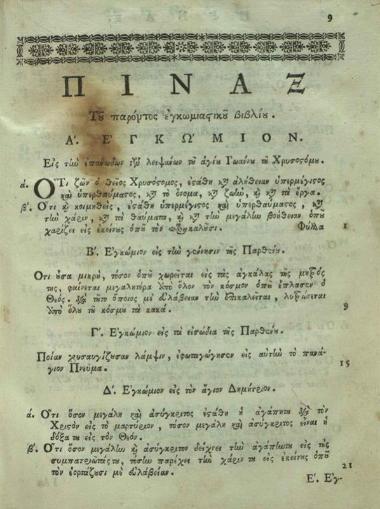 9
ΠΙΝΑΞ
Τοῦ παρόντος ἐγκωμιαςικοῦ βιβλίου.
Α΄. ΕΓΚΩ΄ΜΙΟΝ.
Εἰς τὴν ἐπάνοδον τῶν λειψάνων τοῦ ἁγίου Ἰωάννου τοῦ Χρυσοςόμου.
ά. Ὅτι ζῶν ὁ θεῖος Χρυσόςομος, ἐςάθη κατ᾽ ἀλήθειαν ὑπερμέγιςος
καὶ ὑπερθαύμαςος, κατὰ τὸ ὄνομα, κατὰ ζωὴν, καὶ τὰ ἔργα.
β΄. Ὅτι καὶ κοιμηθεὶς, ἐςάθη ὑπερμέγιςος καὶ ὑπερθαύμαςος, κατὰ
τὴν χάριν, κατὰ τὰ θαύματα, καὶ κατὰ τὴν μεγάλην βοήθειαν ὁποῦ
χαρίζει εἰς ἐκείνους ὁποῦ τὸν Φύλλα 1
Β΄. Ἐγκώμιον εἰς τὴν γέννησιν τῆς Παρθένου.
Ὅτι ὅσα μικρὴ, τόσον ὁποῦ χωρεῖται εἰς τὰς ἀγκάλας τῆς μητρός
της, φαίνεται μεγαλητέρα ἀπὸ ὅλον τὸν κόσμον ὁποῦ ἔπλασεν ὁ
Θεός. διὰ τοῦτο ὅποιος μὲ εὐλάβειαν τὴν ἐπικαλεῖται, λυτρώνεται
ἀπὸ ὅλα τοῦ κόσμου τὰ κακά. 9
Γ΄. Ἐγκώμιον εἰς τὰ εἰσόδια τῆς Παρθένου.
Ποίαν χρυσαυγίζουσαν λάμψιν, ἐφωταγώγησεν εἰς αὐτὴν τὸ πανά-
γιον Πνεῦμα. 15
Δ΄. Ἐγκώμιον εἰς τὸν ἅγιον Δημήτριον.
ά. Ὅτι ὅσον μεγάλη καὶ ἀσύγκριτος ἐςάθη ἡ ἀγάπη του διὰ τὸν
Χριςὸν εἰς τὸ μαρτύριον, τόσον μεγάλη καὶ ἀσύγκριτος εἶναι ἡ
δόξα του εἰς τὸν Θεόν.
β΄. Ὅτι ὅσον μεγάλην καὶ ἀσύγκριτον δείχνει τὴν ἀγάπην του εἰς τοὺς
συμπατριώτας του, τόσην παρέχει τὴν χάριν του εἰς ἐκείνους ὁποῦ
τὸν ἑορτάζουσι μὲ εὐλάβειαν. 21
Ε΄. Ἐγ-